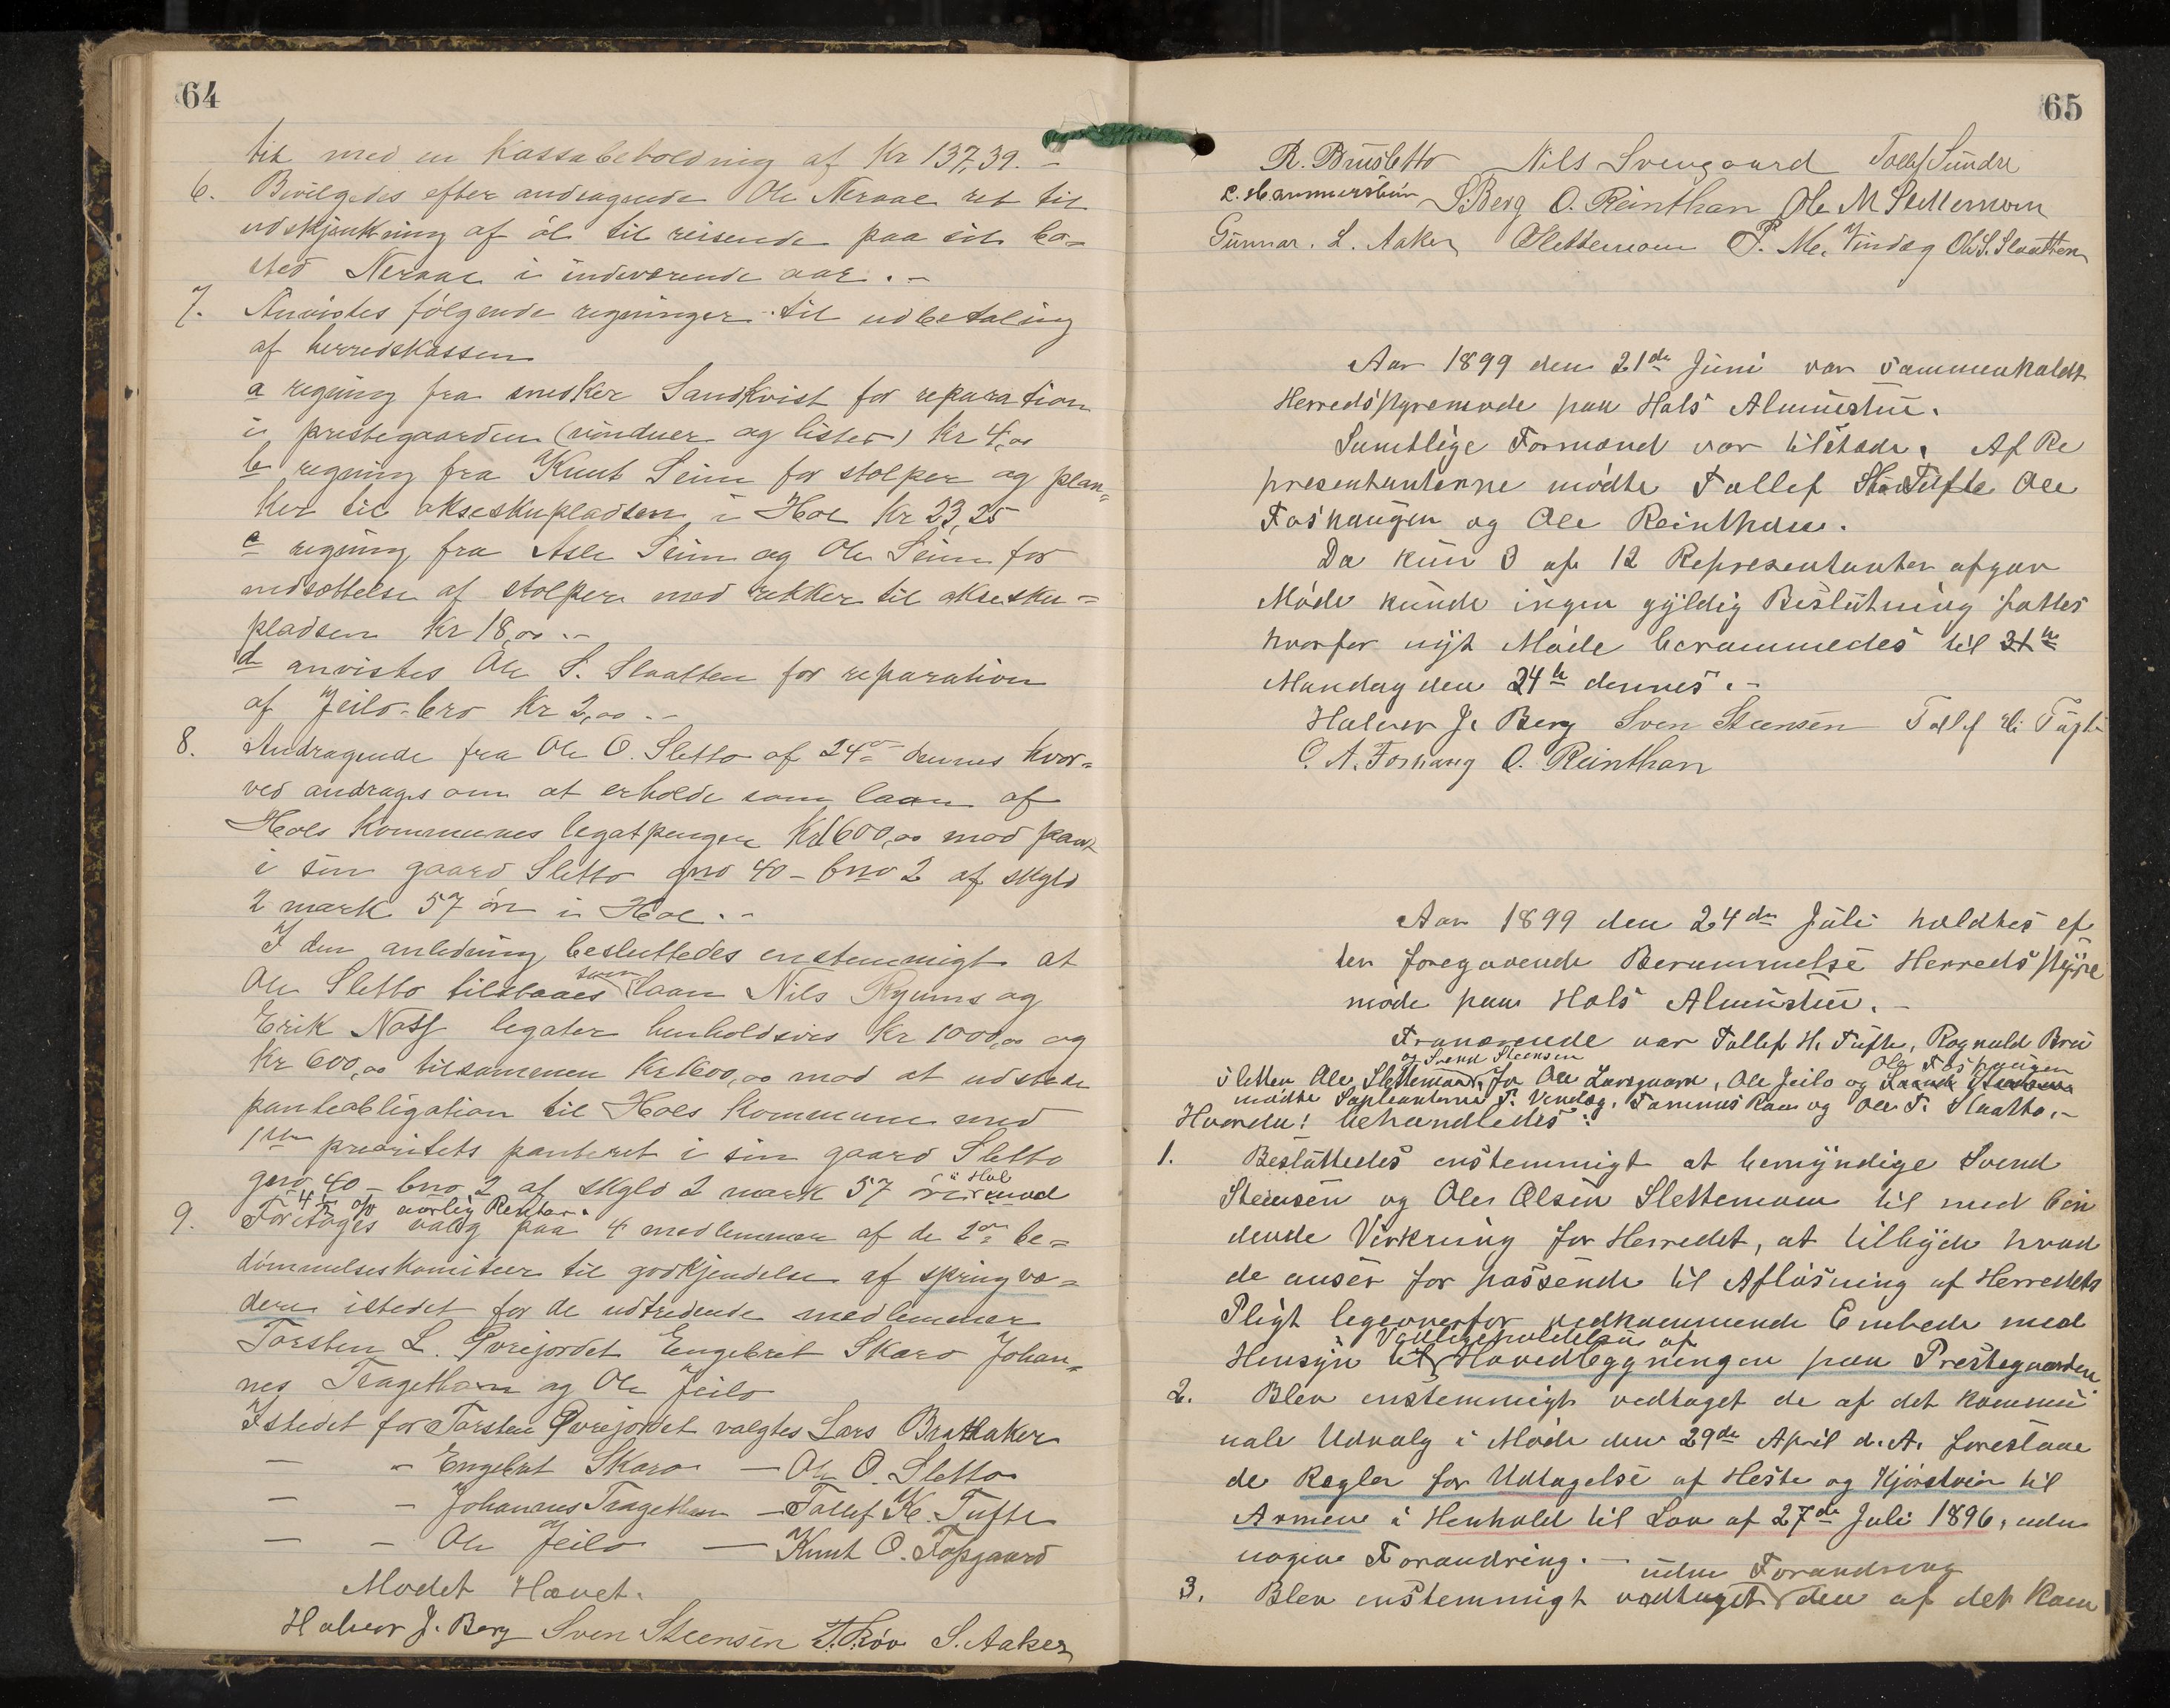 64
tek med en Kassabeholdning af Kr 137,39. –
6. Bevilgedes efter andragende Ole Neraal ret til
udskjænkning af öl til reisende paa sit bo=
sted Neraal i indeværende aar. –
7. Anvistes følgende regninger til udbetaling
af herredskassen
a regning fra snedker Sandkvist for reparation
i prestegaarden (vinduer og lister) Kr 4,00
b regning fra Knut Seim for stolper og plan=
ker til okseskupladsen i Hol Kr 23,25
c regning fra Asle Seim og Ole Seim for
nedsættelse af stolper med rekker til oksesku=
pladsen Kr 18,00 –
d anvistes Ole S. Slaatten for reparation
af Jeilo-bro Kr 2,00 –
8. Andragende fra Ole O. Sletto af 24de dennes hvor=
ved andrages om at erholde som laan af
Hols Kommunes legatpenge Kr 1600,00 mod pant
i sin gaard Sletto gno 40 – bno 2 af skyld
2 mark 57 öre i Hol. –
I den anledning besluttedes enstemmigt at
Ole Sletto tilstaaes som laan Nils Ryums og
Erik Næss legater henholdsvis Kr 1000,00 og
Kr 600,00 tilsammen Kr 1600,00 mod at udstede
panteobligation til Hols Kommune med
1ste prioritets panteret i sin gaard Sletto
gno 40 – bno 2 af skyld 2 mark 57 öre i Hol mod
4½ % aarlig Renter.
9. Foretoges valg paa 4 medlemmer af de 2de be=
dömmelseskomiteer til godkjendelse af springvæ=
dere istedet for de udtredende medlemmer
Torsten L. Øvrejordet Engebret Skaro Johan=
nes Tragethon og Ole Jeilo
Istedet for Torsten Øvrejordet valgtes Lars Brattaker
— – Engebret Skaro — Ole O. Sletto
— – Johannes Tragethon — Tollef K. Tufte
— – Ole Jeilo — Knut O. Fossgaard
Mödet Hævet.
Halvor J. Berg Sven Steensen T. Röv S. Aaker
65
R. Brusletto Nils Svengaard Tollef Sundre
L. Hammersbøen S. Berg O. Reinthon Ole M Slettemoen
Gunnar. L. Aaker OSlettemoen P. M. Vindeg Ole S. Slaatten
Aar 1899 den 21de Juni var sammenkaldt
Herredsstyremöde paa Hols Almustue.
Samtlige Formænd var tilstede. Af Re
presentanterne mödte Tollef H. Tufte Ole
Foshaugen og Ole Reinthon.
Da kun 3 af 12 Representanter afgav
Möde kunde ingen gyldig Beslutning fattes
hvorfor nyt Möde berammedes til 21de
Mandag den 24de dennes. –
Halvor J. Berg Sven Steensen Tollef H. Tufte
O. A. Foshaug O. Reinthon
Aar 1899 den 24de Juli holdtes ef
ter foregaaende Berammelse Herredsstyre
möde paa Hols Almustue. –
Fraværende var Tollef H. Tufte, Rognald Bru
og Svend Steensen Ole Foshaugen
sletten Ole Slettemoen, for Ole Larsgaard, Ole Jeilo og
mödte Suplianterne P. Vindeg, Tommas Ram og Ole T. Slaatto. –
Hvorda! behandledes:
1. Besluttedes enstemmigt at bemyndige Svend
Steensen og Ole Olsen Slettemoen til med bin
dende Virkning for Herredet, at tilbyde hvad
de anser for passende til Aflösning af Herredets
Pligt ligeoverfor vedkommende Embede med
Vedligeholdelsen af
Hensyn til Hovedbygningen paa Prestegaarden
2. Blev enstemmigt vedtaget de af det kommu
nale Udvalg i Möde den 29de April d.A. foreslaae
de Regler for Udtagelse af Heste og Kjöretöier til
Armeen i Henhold til Lov af 27de Juli 1896, uden
nogen Forandring. – uden Forandring
3. Blev enstemmigt vedtaget den af det Kom